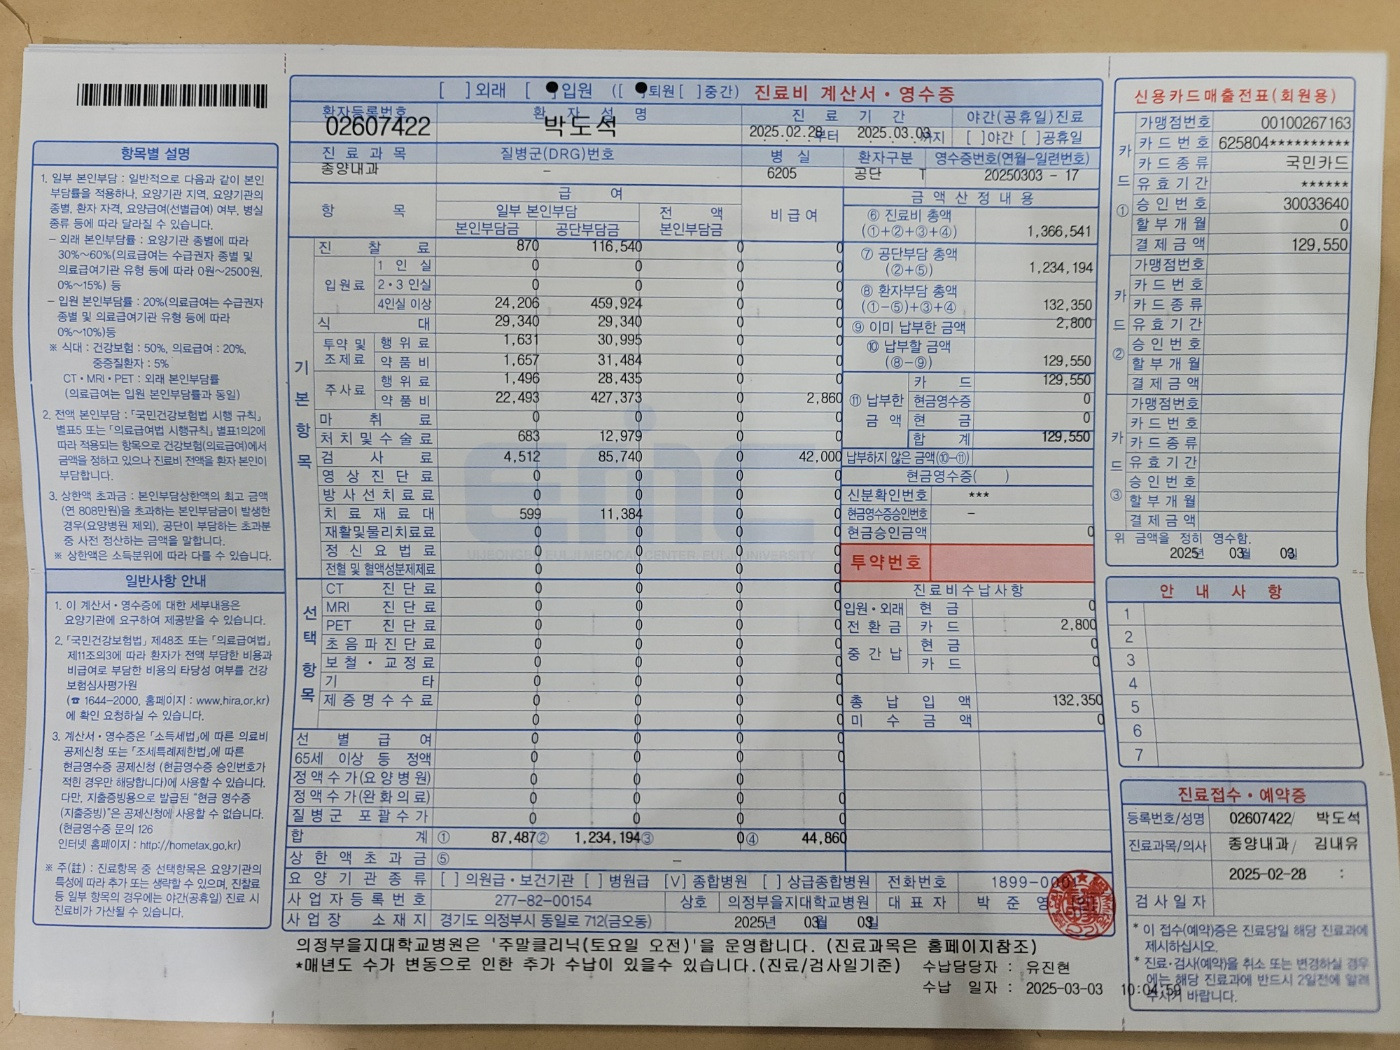 [ ]외래 [●]입원 ([●]퇴원[ ]중간) 진료비 계산서・영수증
환자등록번호 환 자 성 명 진 료 기 간 야간(공휴일)진료
02607422 박도석 2025.02.28부터 2025.03.03까지 [ ]야간 [ ]공휴일
진 료 과 목 질병군(DRG)번호 병 실 환자구분 영수증번호(연월-일련번호)
종양내과 - 6205 공단 T 20250303 - 17
항 목 급 여 비급여 금 액 산 정 내 용
일부 본인부담 전 액
본인부담금 공단부담금 본인부담금
기 본 항 목
진 찰 료 870 116,540 0 0
입원료
1 인 실 0 0 0 0
2・3 인실 0 0 0 0
4인실 이상 24,206 459,924 0 0
식 대 29,340 29,340 0 0
투약 및 조제료
행 위 료 1,631 30,995 0 0
약 품 비 1,657 31,484 0 0
주사료
행 위 료 1,496 28,435 0 0
약 품 비 22,493 427,373 0 2,860
마 취 료 0 0 0 0
처치 및 수술료 683 12,979 0 0
검 사 료 4,512 85,740 0 42,000
영 상 진 단 료 0 0 0 0
방 사 선 치 료 료 0 0 0 0
치 료 재 료 대 599 11,384 0 0
재활및물리치료료 0 0 0 0
정 신 요 법 료 0 0 0 0
전혈 및 혈액성분제제료 0 0 0 0
선 택 항 목
CT 진 단 료 0 0 0 0
MRI 진 단 료 0 0 0 0
PET 진 단 료 0 0 0 0
초 음 파 진 단 료 0 0 0 0
보 철 ・ 교 정 료 0 0 0 0
기 타 0 0 0 0
제 증 명 수 수 료 0 0 0 0
0 0 0 0
선 별 급 여 0 0 0 0
65세 이상 등 정액 0 0 0 0
정액수가(요양병원) 0 0 0 0
정액수가(완화의료) 0 0 0 0
질 병 군 포 괄 수 가 0 0 0 0
합 계 ① 87,487 ② 1,234,194 ③ 0 ④ 44,860
상 한 액 초 과 금 ⑤ -
⑥ 진료비 총액
(①+②+③+④) 1,366,541
⑦ 공단부담 총액
(②+⑤) 1,234,194
⑧ 환자부담 총액
(①-⑤)+③+④ 132,350
⑨ 이미 납부한 금액 2,800
⑩ 납부할 금액
(⑧-⑨) 129,550
⑪ 납부한 금 액
카 드 129,550
현금영수증 0
현 금 0
합 계 129,550
납부하지 않은 금액(⑩-⑪)
현금영수증( )
신분확인번호 ***
현금영수증승인번호 -
현금승인금액 0
투약번호
진 료 비 수 납 사 항
입원・외래 전 환 금
현 금 0
카 드 2,800
중 간 납
현 금 0
카 드 0
총 납 입 액 132,350
미 수 금 액 0
요 양 기 관 종 류 [ ] 의원급・보건기관 [ ] 병원급 [V] 종합병원 [ ] 상급종합병원 전화번호 1899-0001
사 업 자 등 록 번 호 277-82-00154 상호 의정부을지대학교병원 대 표 자 박 준 영
사 업 장 소 재 지 경기도 의정부시 동일로 712(금오동) 2025년 03월 03일
의정부을지대학교병원은 '주말클리닉(토요일 오전)'을 운영합니다. (진료과목은 홈페이지참조)
*매년도 수가 변동으로 인한 추가 수납이 있을수 있습니다.(진료/검사일기준) 수납담당자 : 유진현
수납 일자 : 2025-03-03 10:04:59
항목별 설명
1. 일부 본인부담 : 일반적으로 다음과 같이 본인
부담률을 적용하나, 요양기관 지역, 요양기관의
종별, 환자 자격, 요양급여(선별급여) 여부, 병실
종류 등에 따라 달라질 수 있습니다.
- 외래 본인부담률 : 요양기관 종별에 따라
30%~60%(의료급여는 수급권자 종별 및
의료급여기관 유형 등에 따라 0원~2500원,
0%~15%) 등
- 입원 본인부담률 : 20%(의료급여는 수급권자
종별 및 의료급여기관 유형 등에 따라
0%~10%)등
※ 식대 : 건강보험 : 50%, 의료급여 : 20%,
중증질환자 : 5%
CT・MRI・PET : 외래 본인부담률
(의료급여는 입원 본인부담률과 동일)
2. 전액 본인부담 : 「국민건강보험법 시행 규칙」
별표5 또는 「의료급여법 시행규칙」 별표1의2에
따라 적용되는 항목으로 건강보험(의료급여)에서
금액을 정하고 있으나 진료비 전액을 환자 본인이
부담합니다.
3. 상한액 초과금 : 본인부담상한액의 최고 금액
(연 808만원)을 초과하는 본인부담금이 발생한
경우(요양병원 제외), 공단이 부담하는 초과분
중 사전 정산하는 금액을 말합니다.
※ 상한액은 소득분위에 따라 다를 수 있습니다.
일반사항 안내
1. 이 계산서・영수증에 대한 세부내용은
요양기관에 요구하여 제공받을 수 있습니다.
2. 「국민건강보험법」 제48조 또는 「의료급여법」
제11조의3에 따라 환자가 전액 부담한 비용과
비급여로 부담한 비용의 타당성 여부를 건강
보험심사평가원
(☎ 1644-2000, 홈페이지 : www.hira.or.kr)
에 확인 요청하실 수 있습니다.
3. 계산서・영수증은 「소득세법」에 따른 의료비
공제신청 또는 「조세특례제한법」에 따른
현금영수증 공제신청 (현금영수증 승인번호가
적힌 경우만 해당합니다)에 사용할 수 있습니다.
다만, 지출증빙용으로 발급된 "현금 영수증
(지출증빙)"은 공제신청에 사용할 수 없습니다.
(현금영수증 문의 126
인터넷 홈페이지 : http://hometax.go.kr)
※ 주(註) : 진료항목 중 선택항목은 요양기관의
특성에 따라 추가 또는 생략할 수 있으며, 진찰료
등 일부 항목의 경우에는 야간(공휴일) 진료 시
진료비가 가산될 수 있습니다.
신용카드매출전표(회원용)
카 드 ①
가맹점번호 00100267163
카 드 번 호 625804**********
카 드 종 류 국민카드
유 효 기 간 ******
승 인 번 호 30033640
할 부 개 월 0
결 제 금 액 129,550
카 드 ②
가맹점번호
카 드 번 호
카 드 종 류
유 효 기 간
승 인 번 호
할 부 개 월
결 제 금 액
카 드 ③
가맹점번호
카 드 번 호
카 드 종 류
유 효 기 간
승 인 번 호
할 부 개 월
결 제 금 액
위 금액을 정히 영수함.
2025년 03월 03일
안 내 사 항
1
2
3
4
5
6
7
진료접수・예약증
등록번호/성명 02607422/ 박도석
진료과목/의사 종양내과/ 김내유
2025-02-28 :
검 사 일 자
* 이 접수(예약)증은 진료당일 해당 진료과에
제시하십시오.
* 진료・검사(예약)을 취소 또는 변경하실 경우
에는 해당 진료과에 반드시 2일전에 알려
주시기 바랍니다.